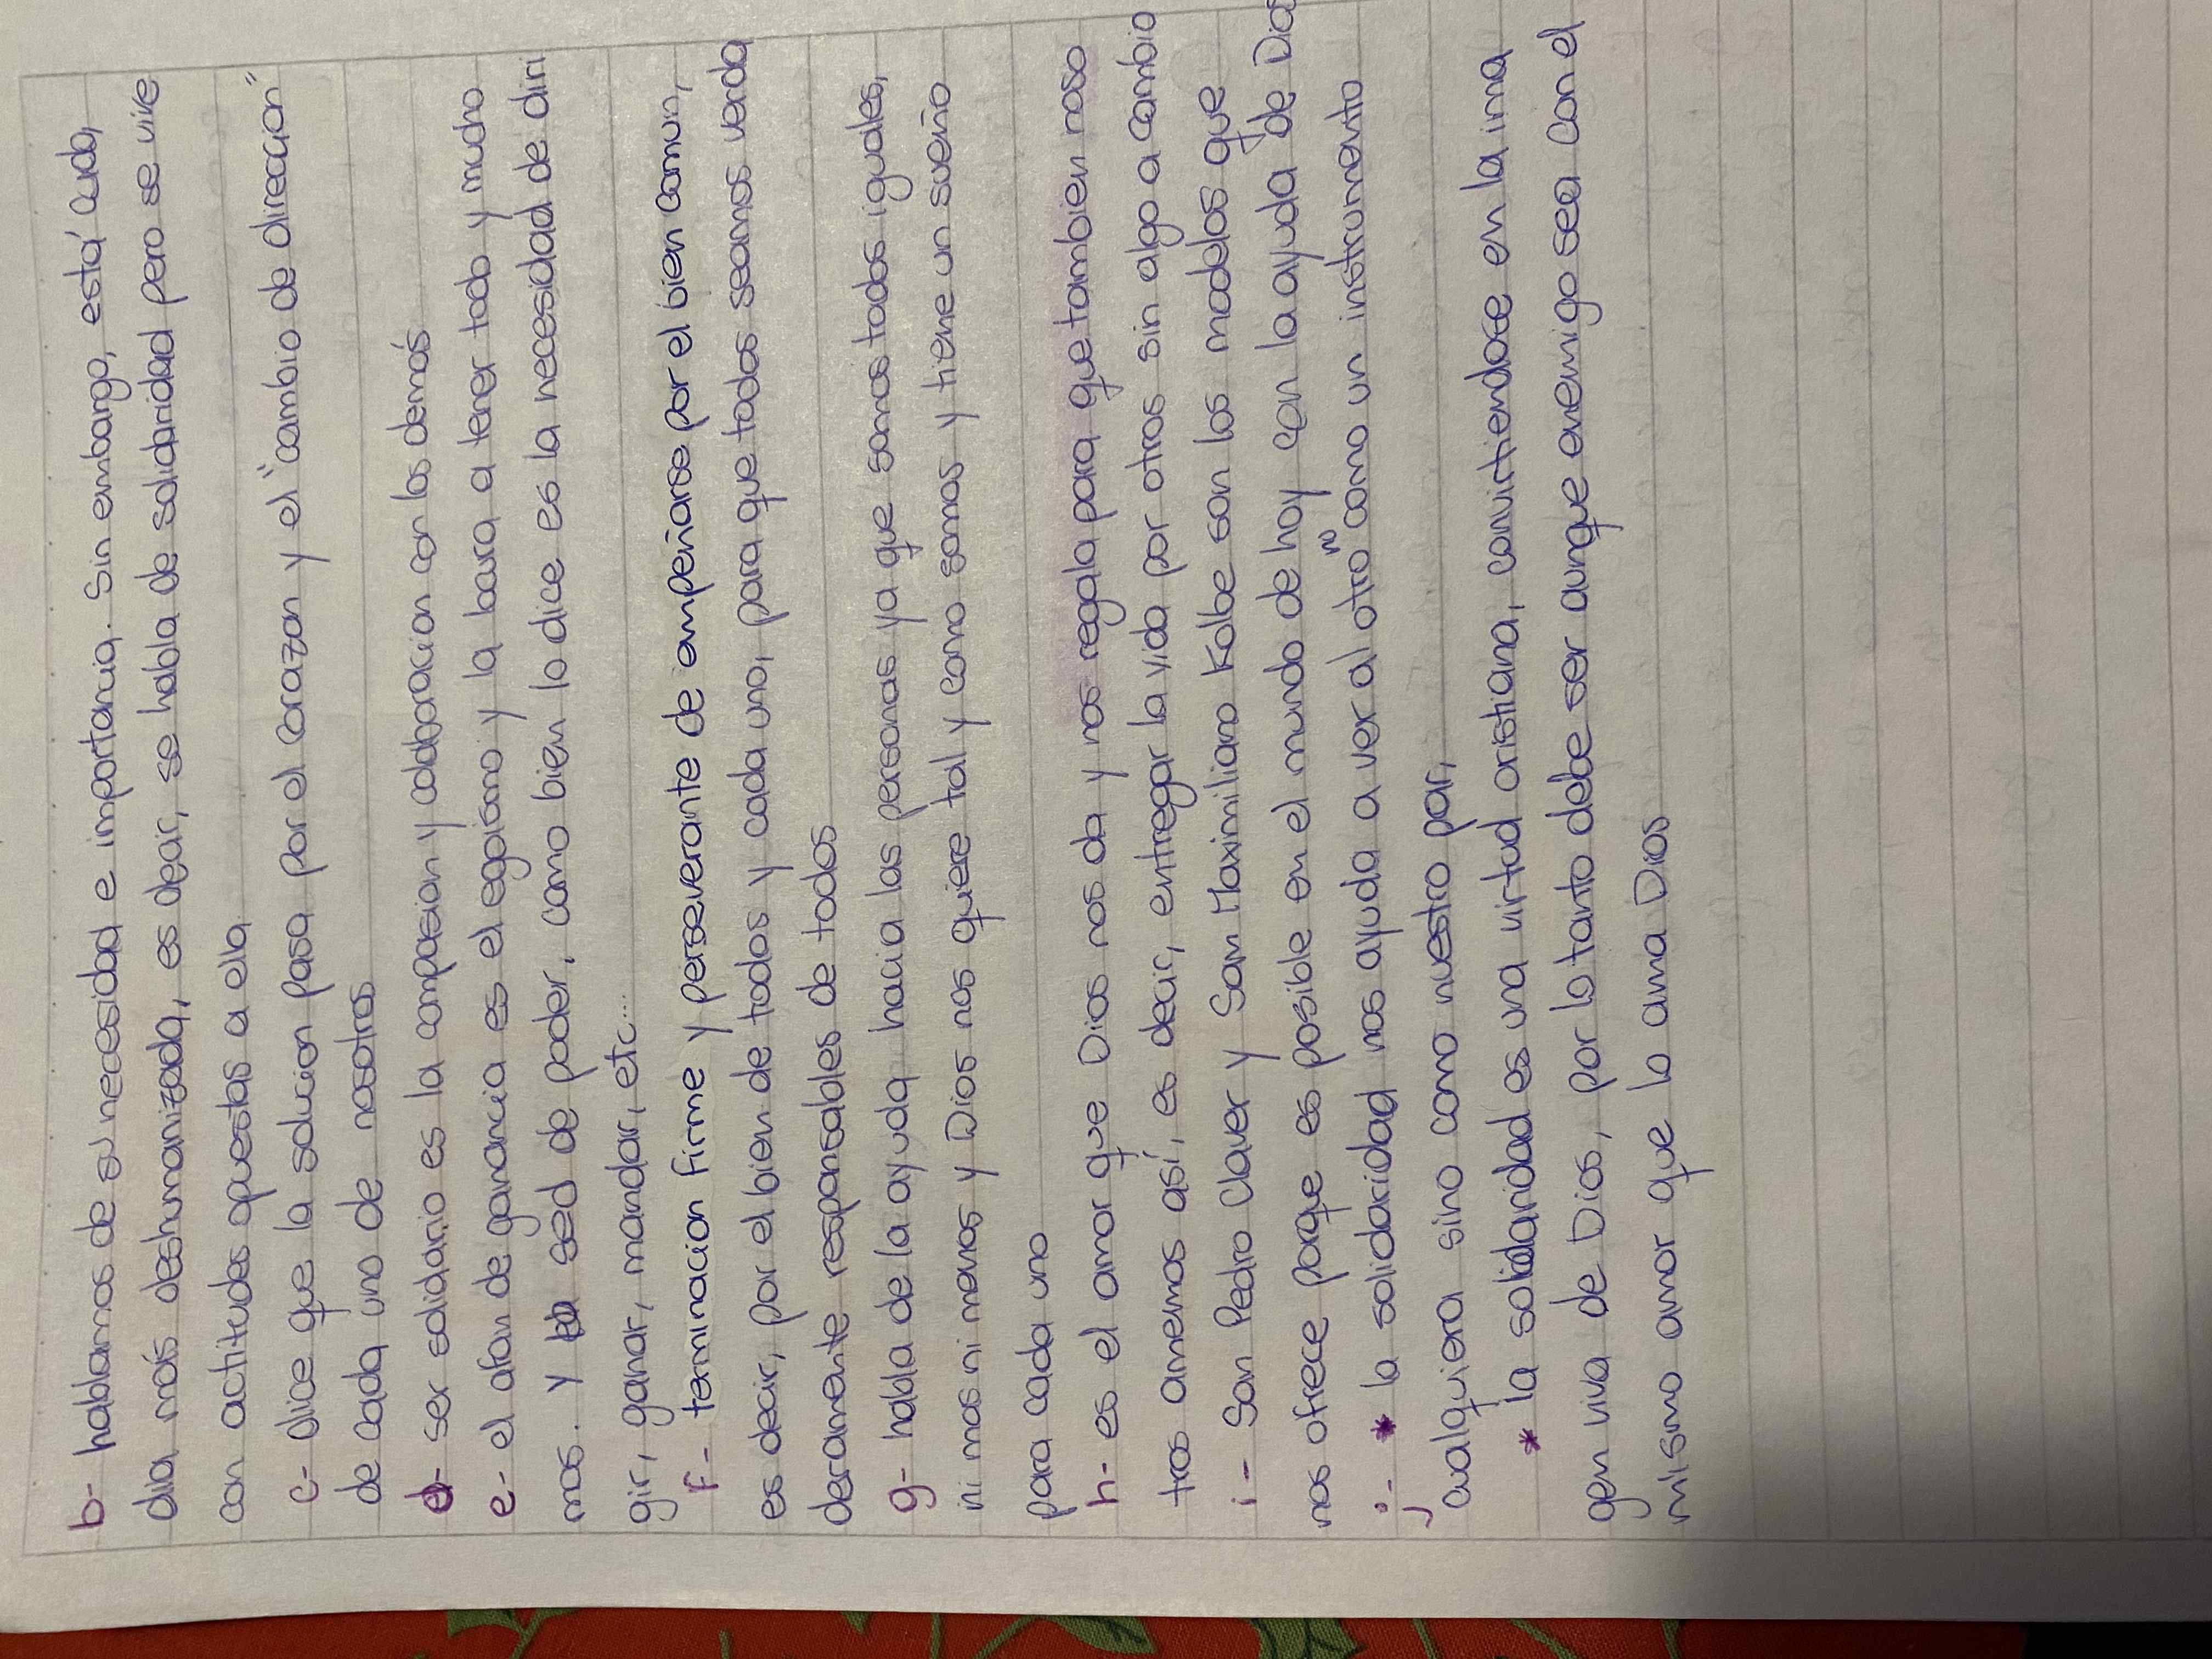 b- hablamos de su necesidad e importancia. Sin embargo, está cada,
dia, más deshumanizada, es decir, se habla de solidaridad pero se vive
con actitudes opuestas a ella
c- dice que la solucion pasa por el corazon y el "cambio de direccion"
de cada uno de nosotros
d- ser solidario es la compasion y colaboracion con los demás
e- el afan de ganancia es el egoismo y la locura a tener todo y mucho
mas. y la sed de poder, como bien lo dice es la necesidad de diri
gir, ganar, mandar, etc...
f- terminacion firme y perseverante de empeñarse por el bien comun,
es decir, por el bien de todos y cada uno, para que todos seamos verda
deramente responsables de todos
g- habla de la ayuda hacia las personas ya que somos todos iguales,
ni mas ni menos y Dios nos quiere tal y como somos y tiene un sueño
para cada uno
h- es el amor que Dios nos da y nos regala para que tambien noso
tros amemos así, es decir, entregar la vida por otros sin algo a cambio
i- San Pedro Claver y San Maximiliano Kolbe son los modelos que
nos ofrece porque es posible en el mundo de hoy con la ayuda de Dios
j- * la solidaridad nos ayuda a ver al otro "no" como un instrumento
cualquiera sino como nuestro par,
* la solidaridad es una virtud cristiana, convirtiendose en la ima
gen viva de Dios, por lo tanto debe ser aunque enemigo sea con el
mismo amor que lo ama Dios